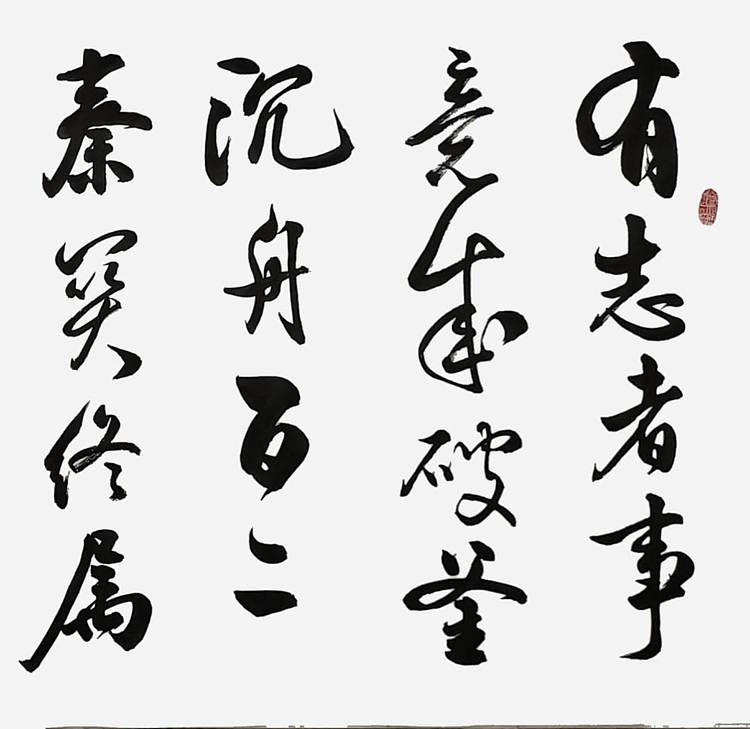 有志者事
竟成破釜
沉舟百二
秦关终属